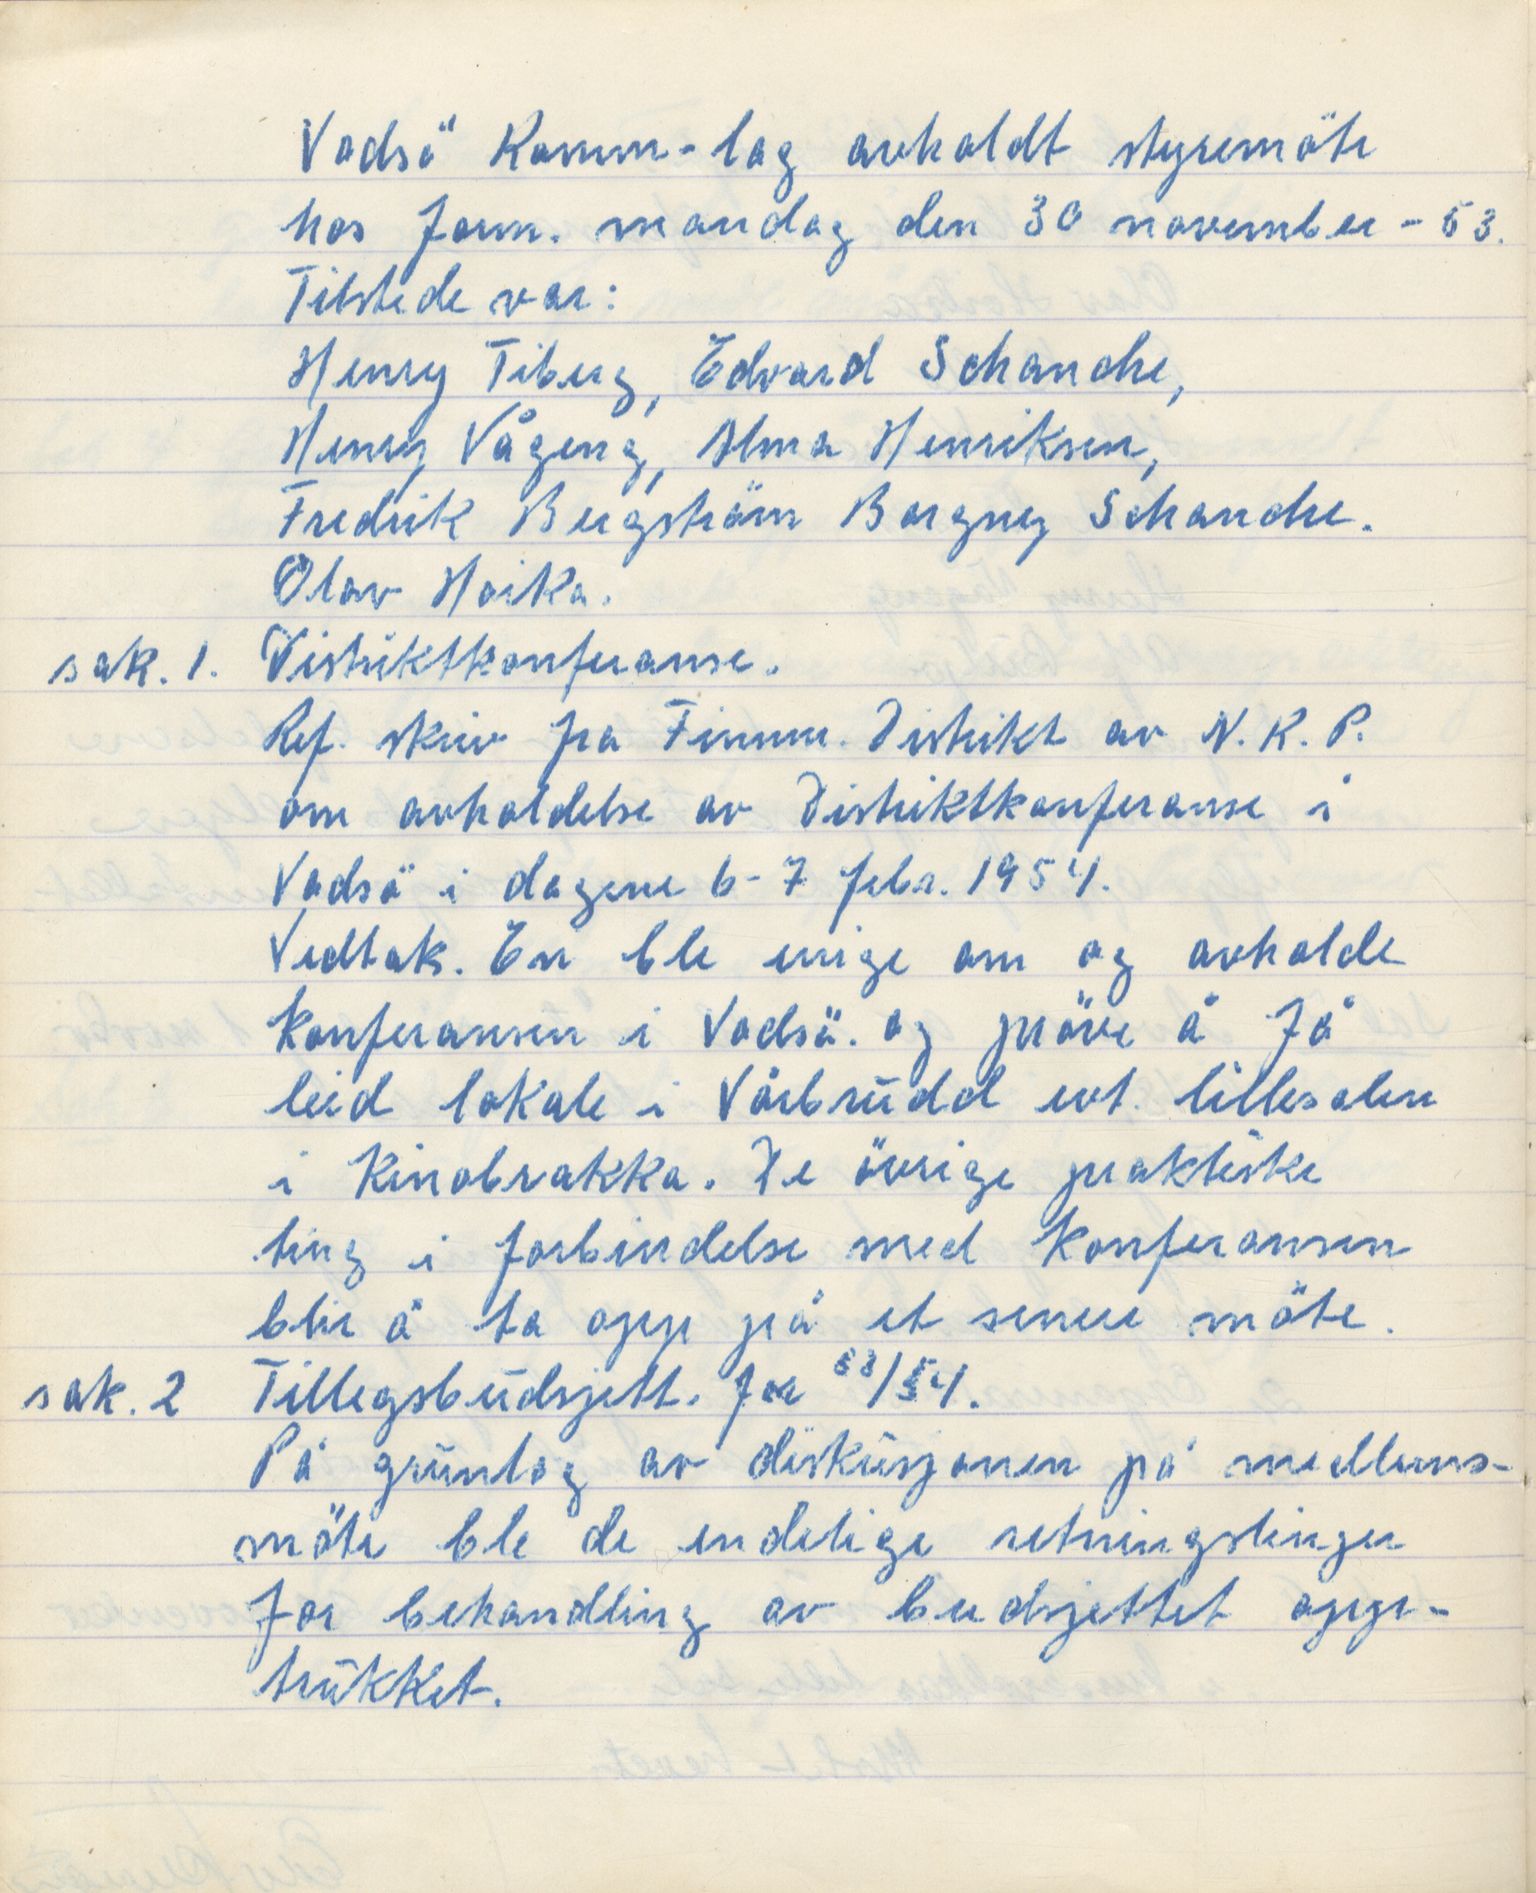 Vadsö Komm-lag avholdt styremöte
hos form. mandag den 30 november - 53.
Tilstede var:
Henry Tiberg, Edvard Schanche,
Henry Vågeng, Alma Henriksen,
Fredrik Bergström Borgny Schanche.
Olav Hoika.
sak. 1. Distriktkonferanse.
Ref. skriv fra Finnm. Distrikt av N. K. P.
om avholdelse av Distriktkonferanse i
Vadsö i dagene 6-7 febr. 1954.
Vedtak. En ble enige om og avholde
konferansen i Vadsö. og pröve å få
leid lokale i Vårbrudd evt. lillesalen
i Kinobrakka. De övrige praktiske
ting i forbindelse med konferansen
blir å ta opp på et senere möte.
sak. 2 Tillegsbudsjett. for 53/54.
På grunlag av diskusjonen på medlems-
möte ble de endelige retningslinjer
for behandling av budsjettet opp-
trukket.